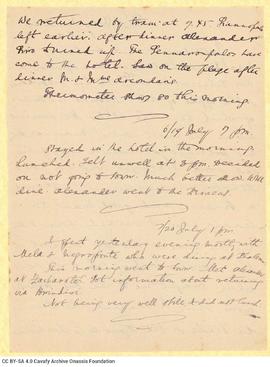 We returned by tram at 7.45
left earlier. After dinner Alexander
turned up. The Pennaropoulos have
come to the hotel. Saw on the plage after
dinner M. & Mme
Thermometer 80 this morning.
6/19 July 7 pm
Stayed in the hotel in the morning
lunched. Felt unwell at 3 pm. Decided
on not going to town. Much better now. Will
dine. Alexander went to the
7/20 July 1 pm
I spent yesterday evening mostly with
Mela & Negroponte who were dining at
This morning went to town. Met
at Zacharatos. Got information about returning
via Brindisi.
Not being very well I did not
CC BY-SA 4.0 Cavafy Archive Onassis Foundation